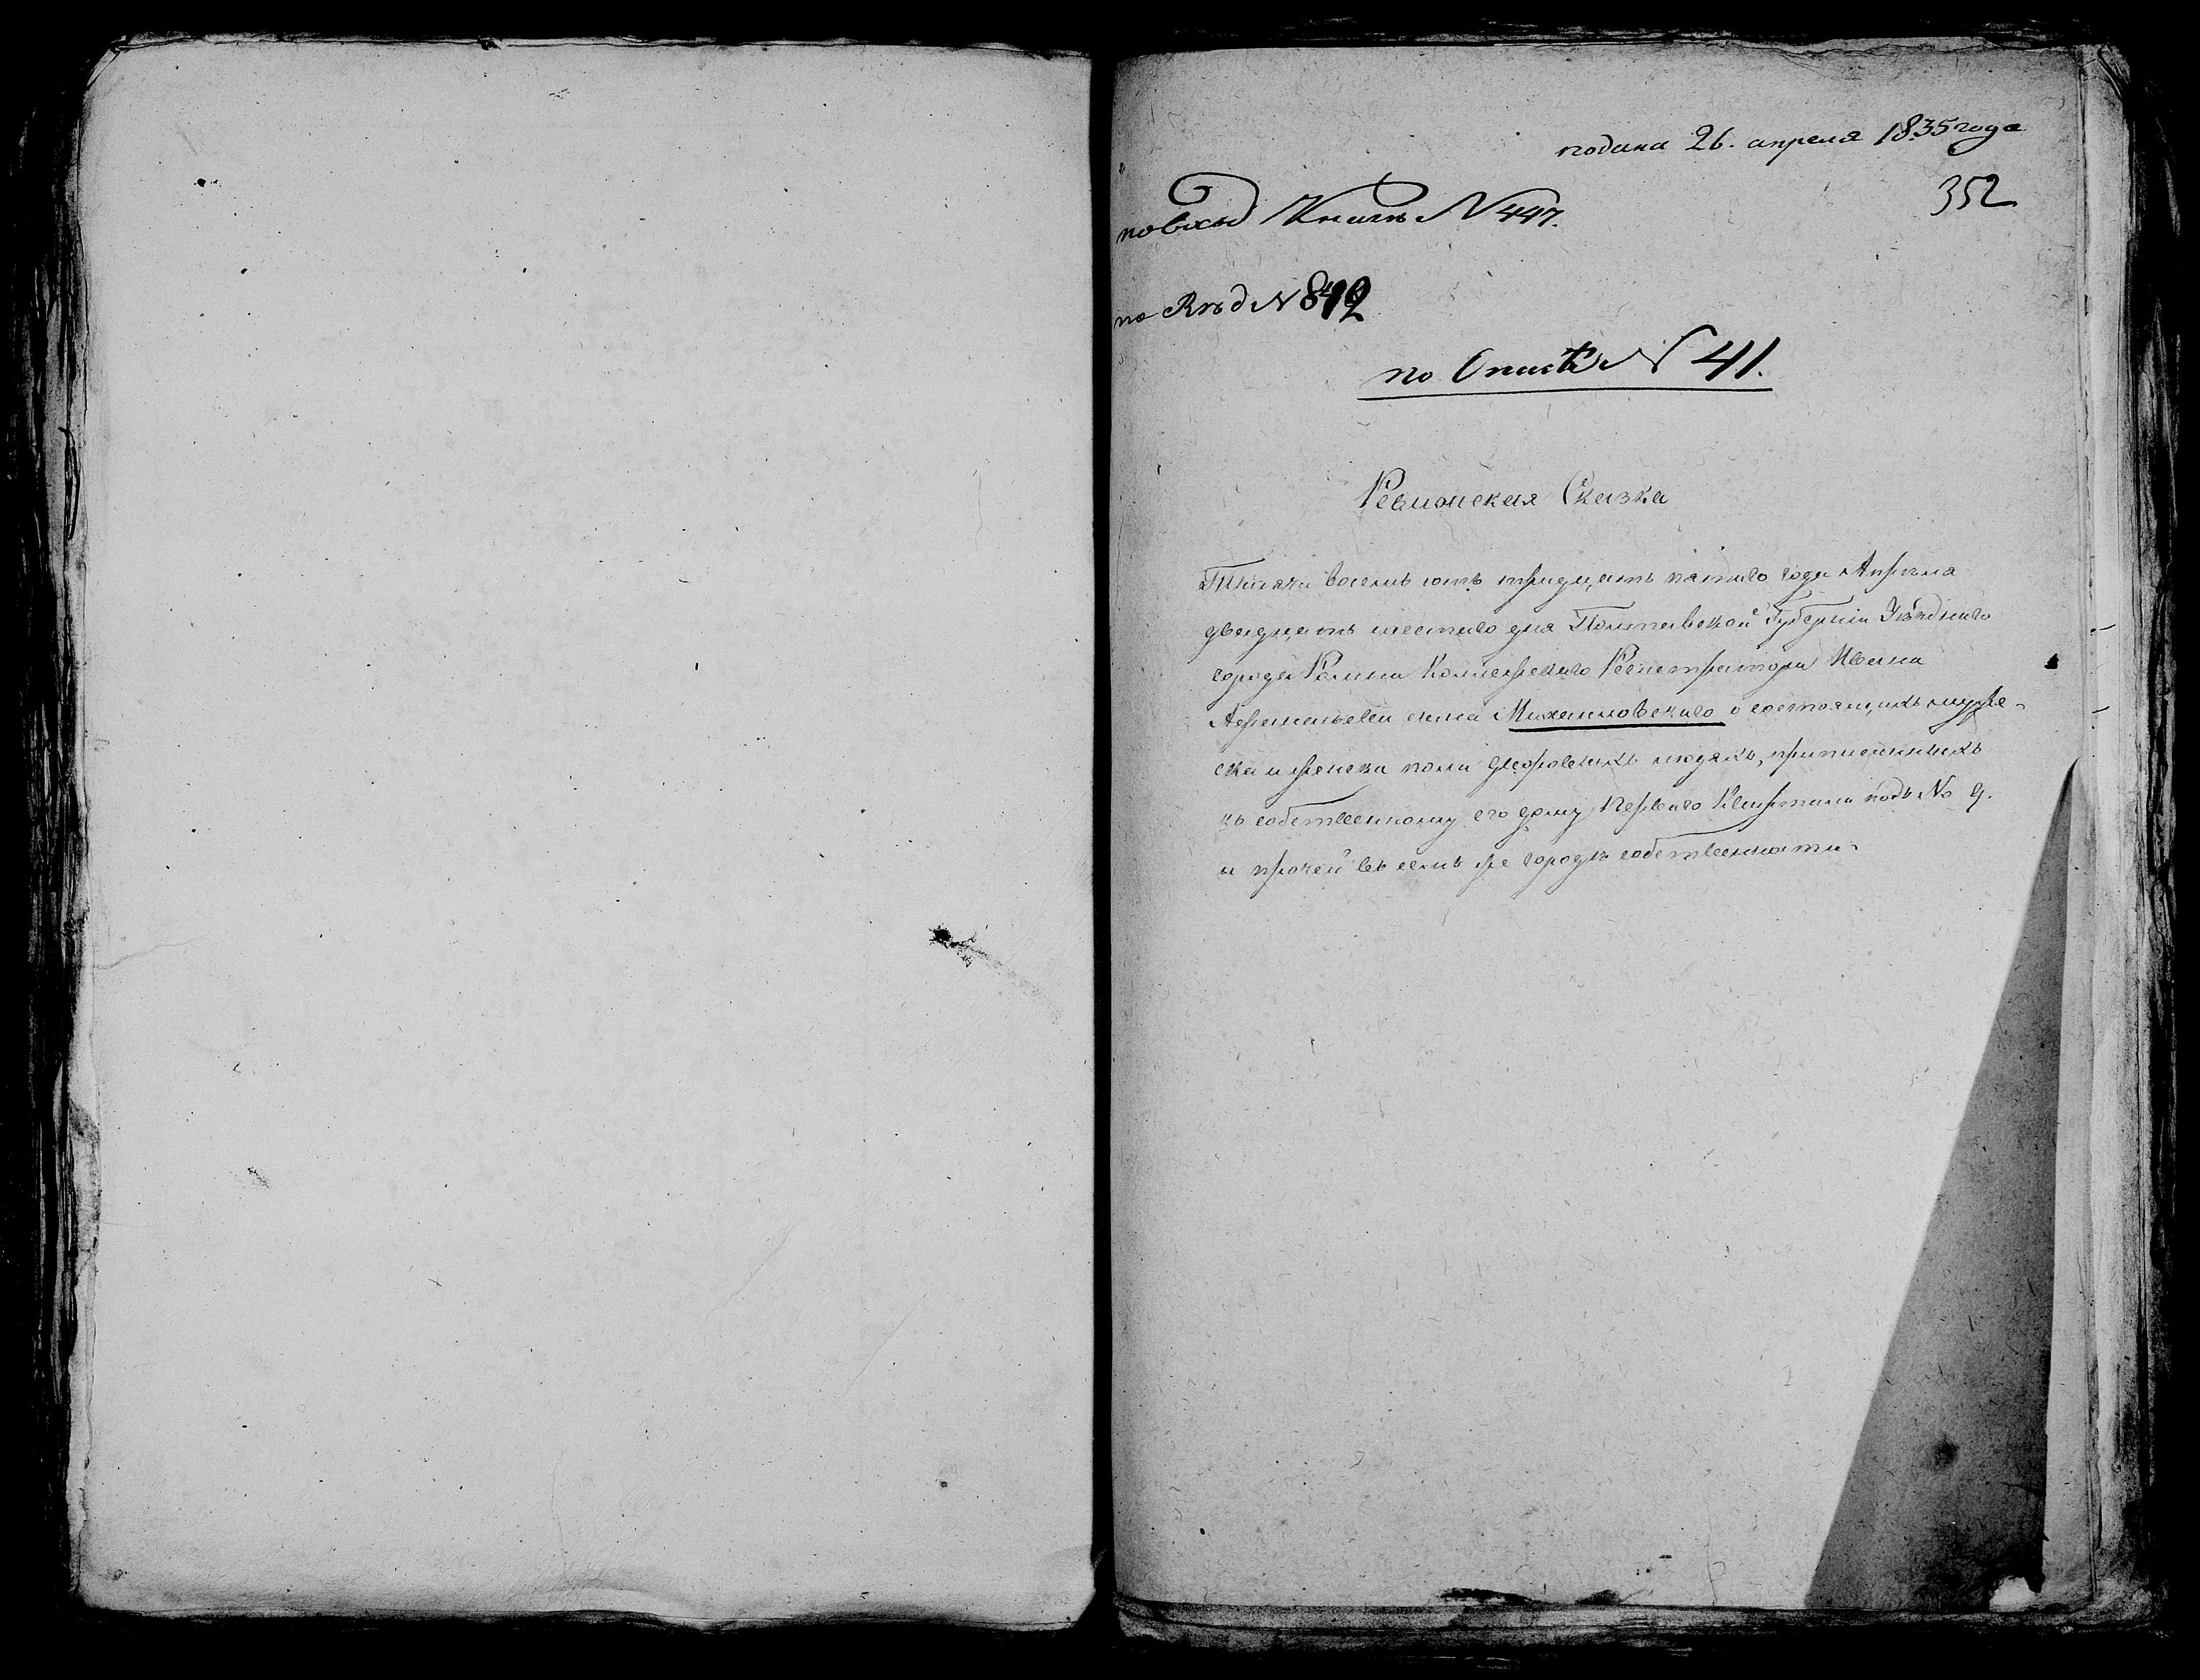 подана 26. апреля 1835 года
352
по вход Книгѣ N 447.
по Ряд N 842
по Описѣ N 41.
Ревижская Сказка
Тысяча восемь сотъ тридцать пятаго года Апрѣля
двадцать шестаго дня Полтавской Губерніи Уѣзднаго
города Ромна Коллежскаго Регистратора Ивана
сына Михайловскаго о состоящихъ мужес-
ка и женска пола дворовыхъ людяхъ, приписанныхъ
къ собственному его дому Первой Квартала подъ No 9.
и прочей въ семъ же городѣ собственности.